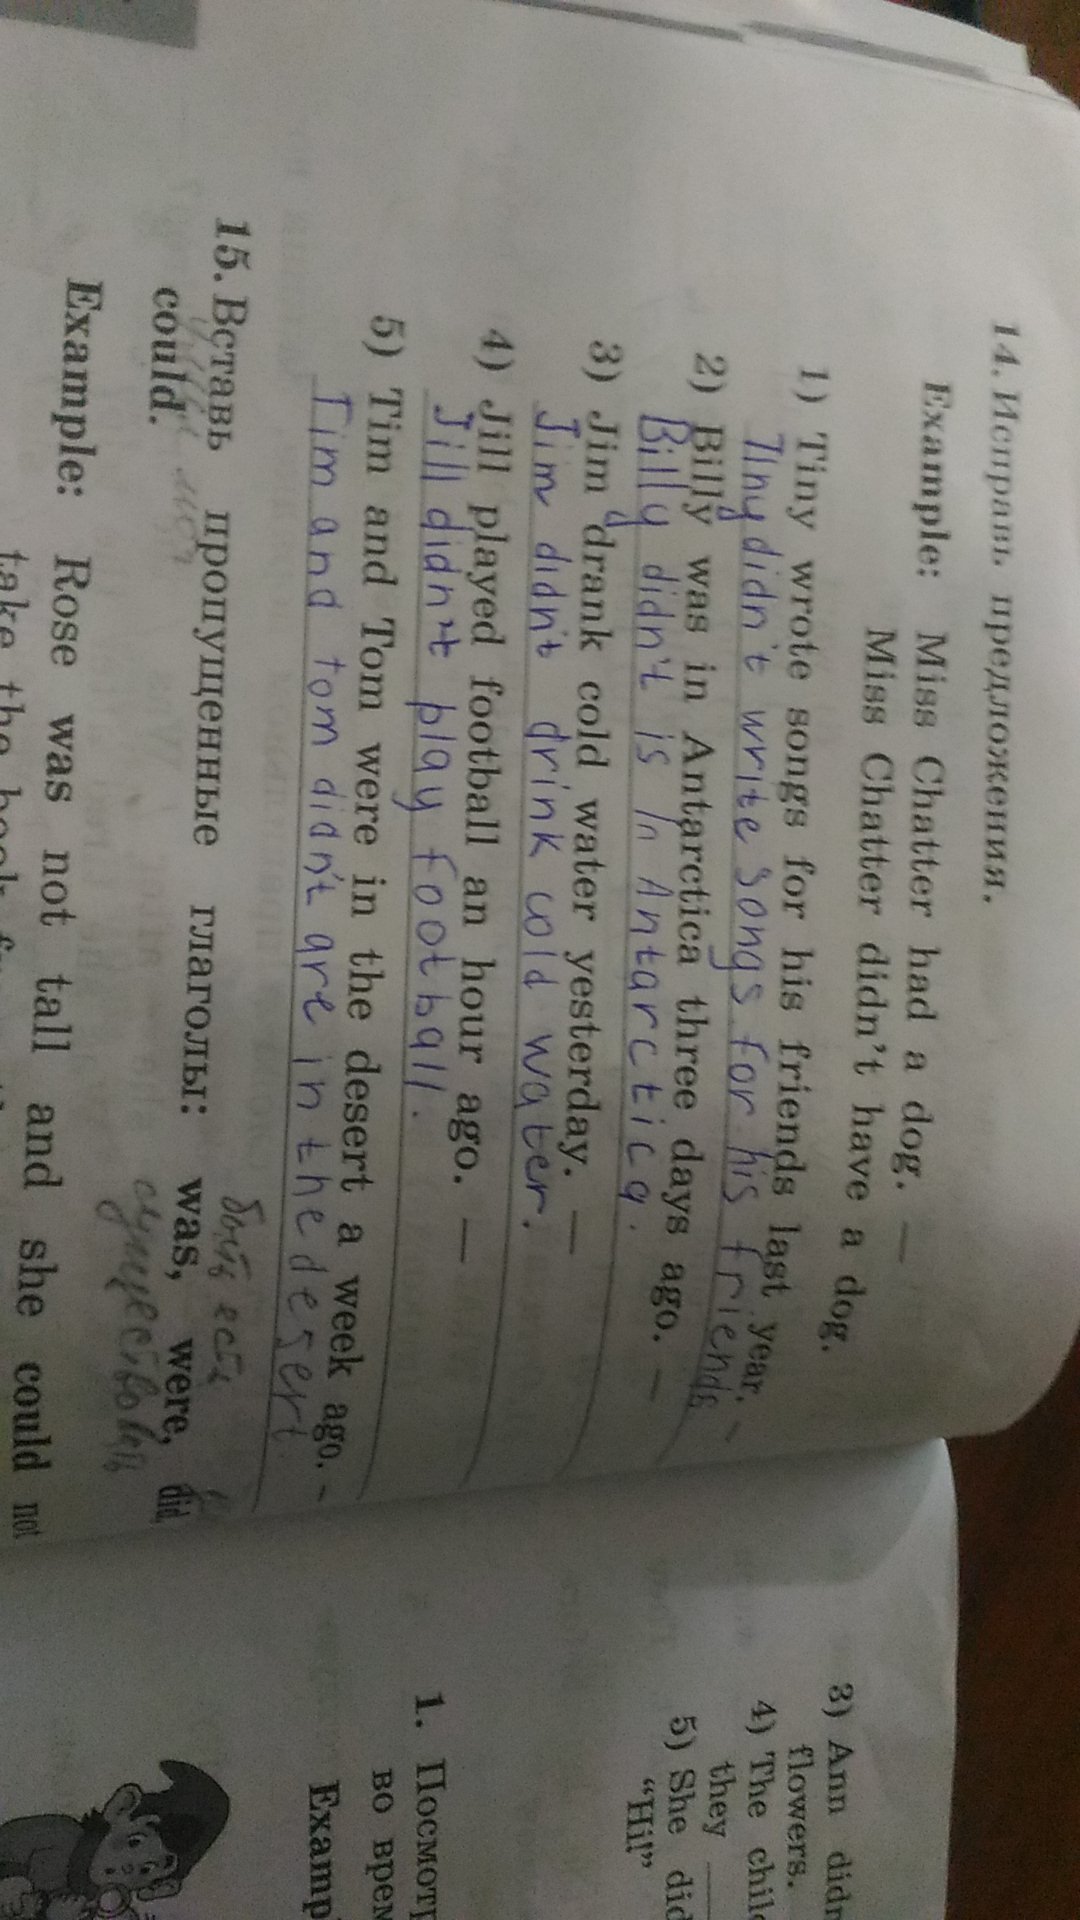 14. Исправь предложения.
Example: Miss Chatter had a dog. —
Miss Chatter didn't have a dog.
1) Tiny wrote songs for his friends last year. –
Tiny didn't write songs for his friends
2) Billy was in Antarctica three days ago. —
Billy didn't is in Antarctica.
3) Jim drank cold water yesterday. —
Jim didn't drink cold water.
4) Jill played football an hour ago. —
Jill didn't play football.
5) Tim and Tom were in the desert a week ago. –
Tim and tom didn't are in the desert
быть есть
15. Вставь пропущенные глаголы: was, were, did,
существовать
could.
Example: Rose was not tall and she could not
take the book
3) Ann didn
flowers.
4) The chil
they
5) She did
“Hi!”
1. Посмот
во врем
Examp